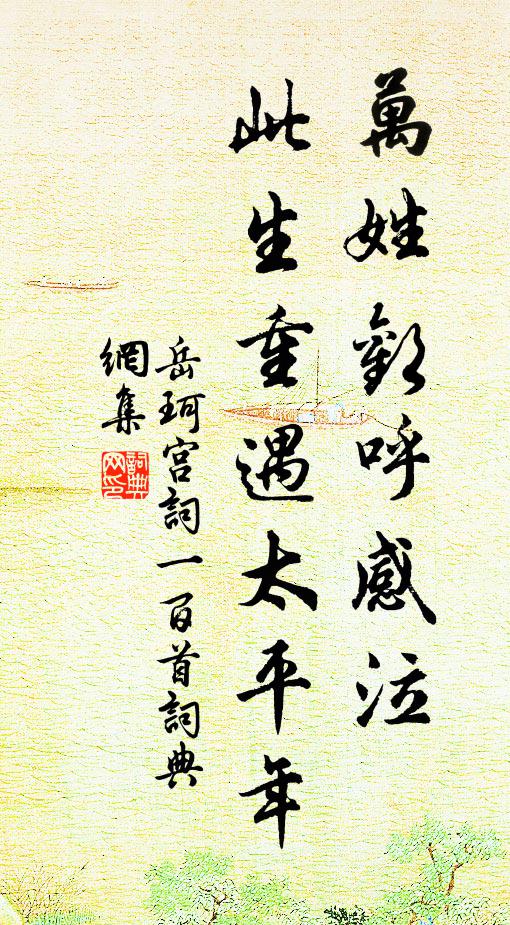 萬姓歡呼感泣
此生重遇太平年
岳珂宮詞一百首詞典
網集
詞典網印